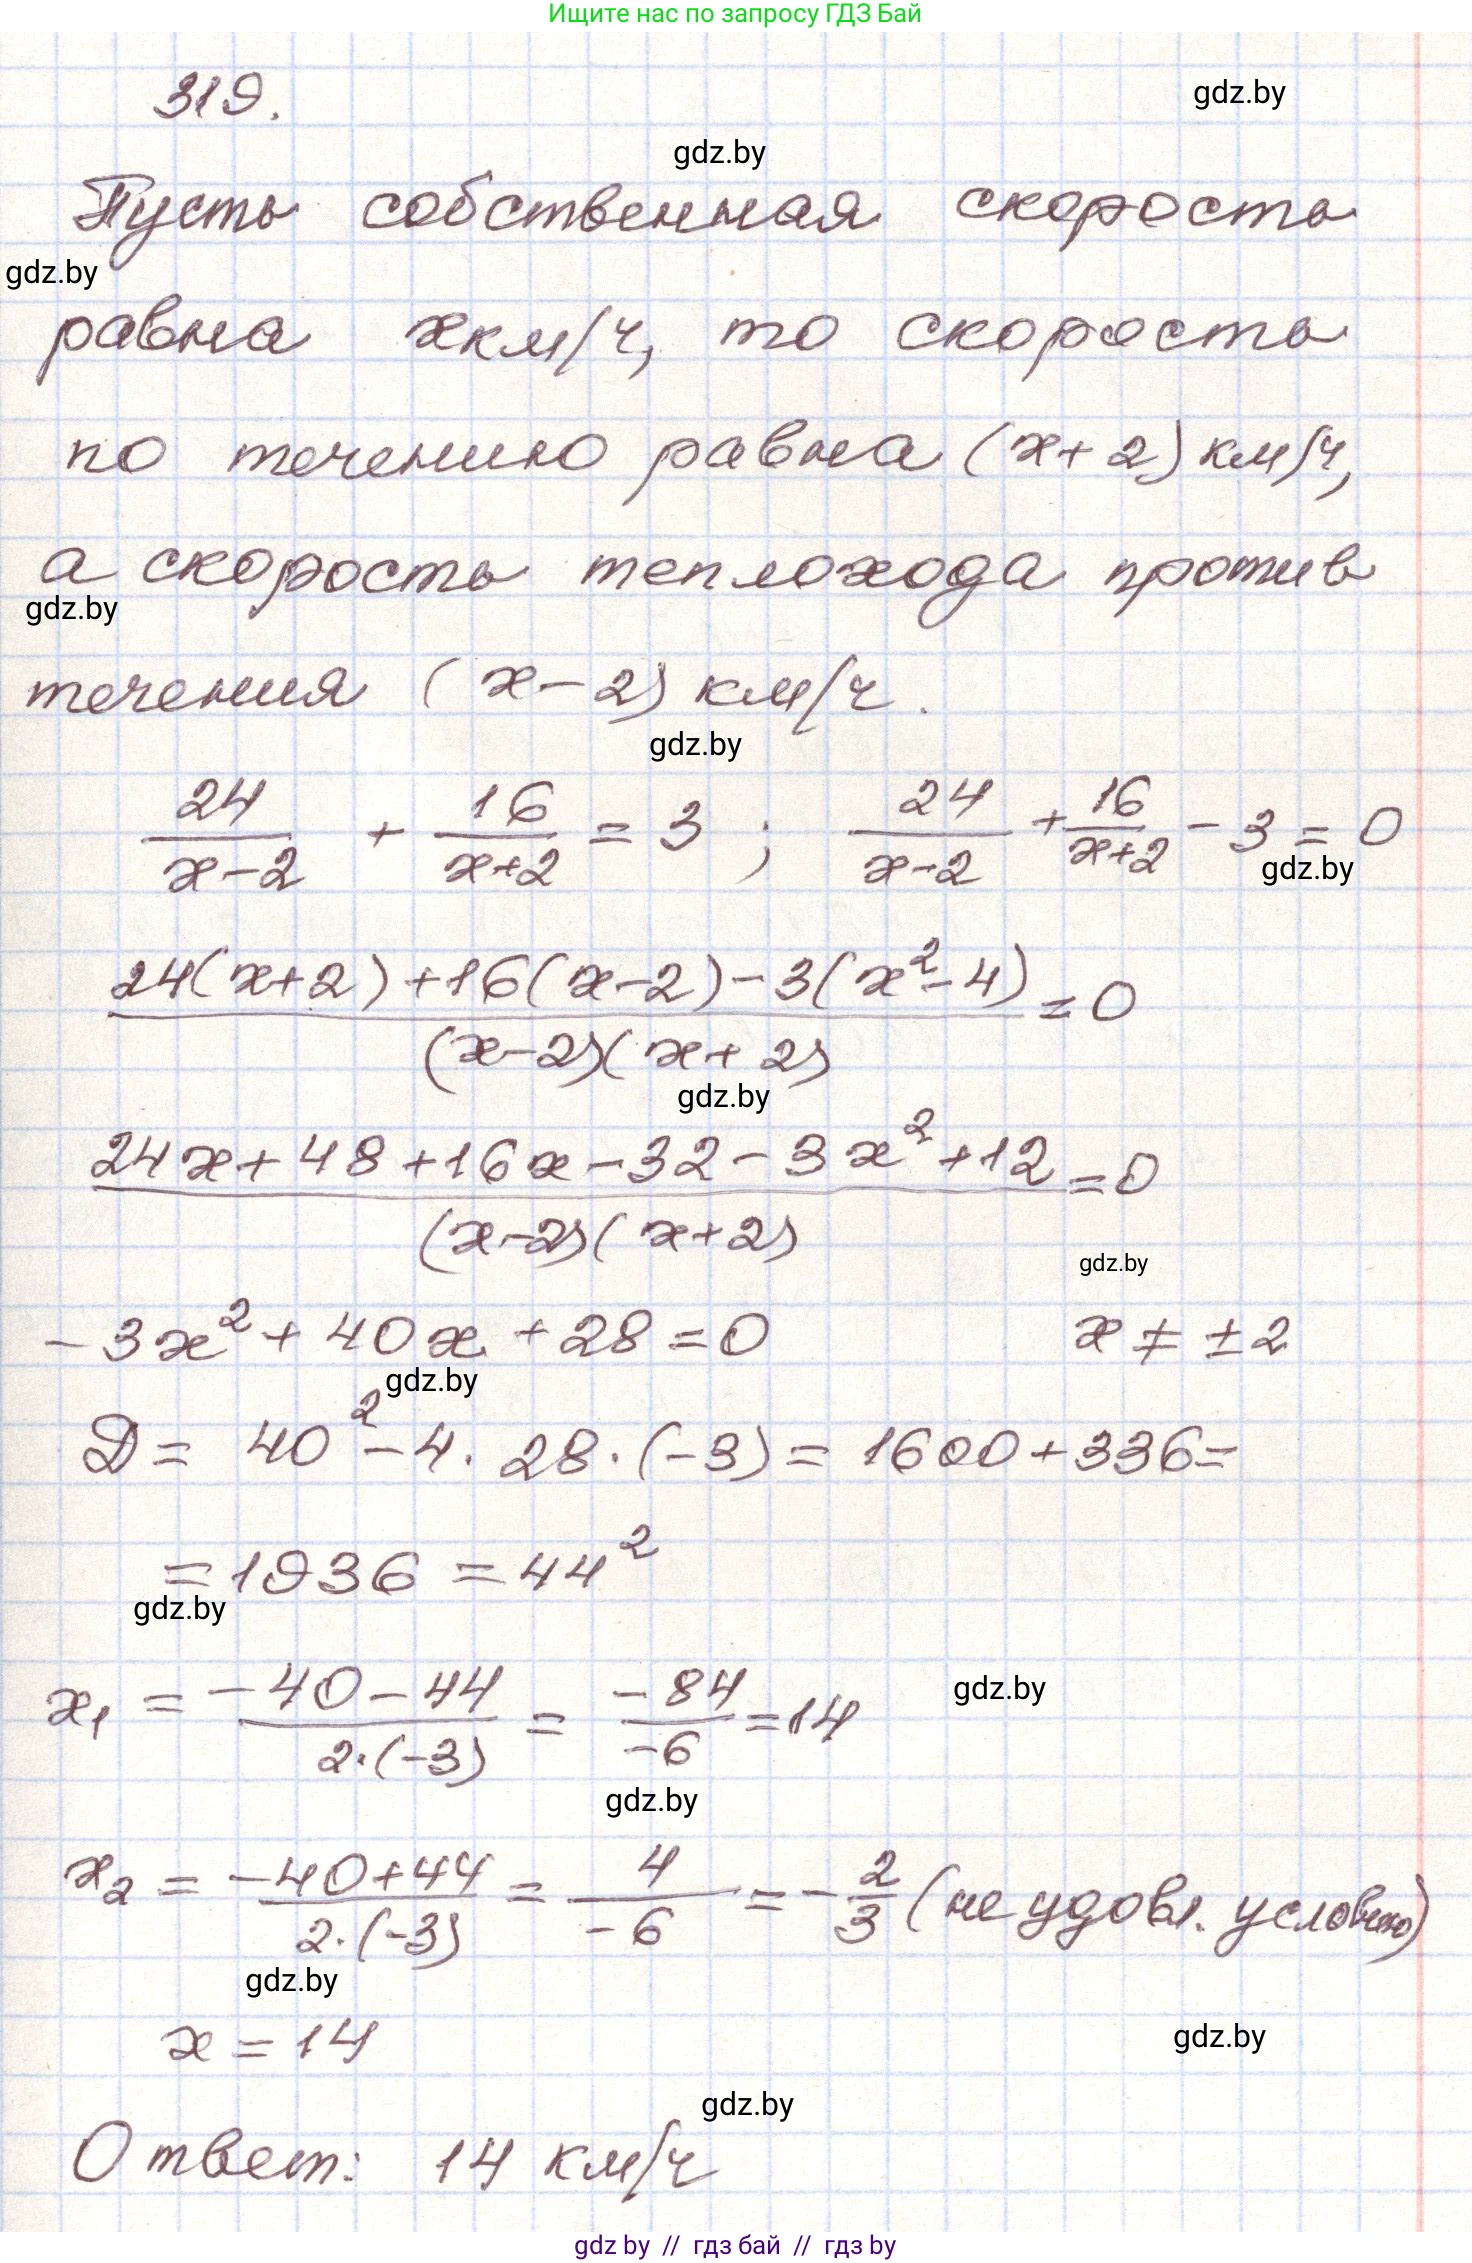 Ищите нас по запросу ГДЗ Бай
319.
gdz.by
gdz.by
Пусть собственная скорость
gdz.by
равна x км/ч, то скорость
по течению равна (x+2) км/ч,
а скорость теплохода против
gdz.by
течения (x-2) км/ч.
gdz.by
24/(x-2) + 16/(x+2) = 3 ; 24/(x-2) + 16/(x+2) - 3 = 0
gdz.by
(24(x+2)+16(x-2)-3(x²-4))/((x-2)(x+2)) = 0
gdz.by
(24x+48+16x-32-3x²+12)/((x-2)(x+2)) = 0
gdz.by
-3x²+40x+28=0 x ≠ ±2
gdz.by
D = 40²-4·28·(-3) = 1600+336=
=1936=44²
gdz.by
x₁ = (-40-44)/(2·(-3)) = -84/-6 = 14
gdz.by
gdz.by
x₂ = (-40+44)/(2·(-3)) = 4/-6 = -2/3 (не удовл. условию)
gdz.by
x = 14
gdz.by
gdz.by
Ответ: 14 км/ч
gdz by // гдз бай // гдз by